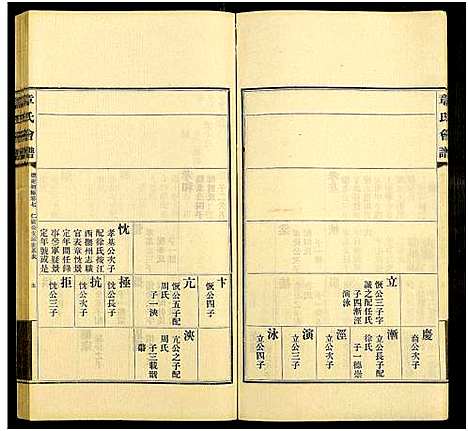 章氏會譜
慶
裔公次子
立
恢公三子字
誠之配任氏
子四漸涇
演泳
漸
立公長子配
徐氏
子一德崇
涇
立公次子
演
立公三子
泳
立公四子
卞
恢公四子
亢
恢公五子配
周氏
子一泱
泱
亢公之子配
周氏
子三載
忱
孝基公次子
配徐氏按江
西撫州志職
官表章忱景
定年間任錄
事參軍疑景
定年號或是
極
忱公長子
抗
忱公次子
拒
忱公三子
章氏會譜